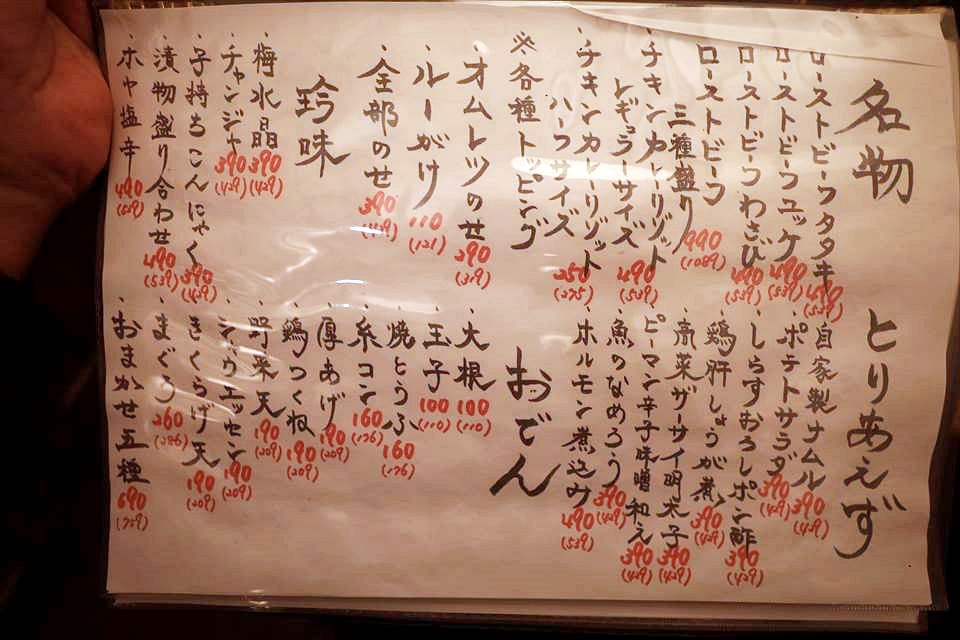 名物
・ローストビーフタタキ 490 (539)
・ローストビーフユッケ 490 (539)
・ローストビーフわさび 490 (539)
・ローストビーフ
三種盛り 990 (1089)
・チキンカレーリゾット
レギュラーサイズ 490 (539)
・チキンカレーリゾット
ハーフサイズ 250 (275)
※各種トッピング
・オムレツのせ 290 (319)
・ルーがけ 110 (121)
・全部のせ 390 (429)
珍味
・梅水晶 390 (429)
・チャンジャ 390 (429)
・子持ちこんにゃく 390 (429)
・漬物盛り合わせ 490 (539)
・ホヤ塩辛 490 (539)
とりあえず
・自家製ナムル 390 (429)
・ポテトサラダ 390 (429)
・しらすおろしポン酢 390 (429)
・鶏肝しょうが煮 390 (429)
・高菜ザーサイ明太子 390 (429)
・ピーマン辛子味噌和え 390 (429)
・魚のなめろう 390 (429)
・ホルモン煮込み 490 (539)
おでん
・大根 100 (110)
・玉子 100 (110)
・焼とうふ 160 (176)
・糸コン 160 (176)
・厚あげ 190 (209)
・鶏つくね 190 (209)
・野菜天 190 (209)
・シャウエッセン 190 (209)
・きくらげ天 190 (209)
・まぐろ 260 (286)
・おまかせ五種 690 (759)